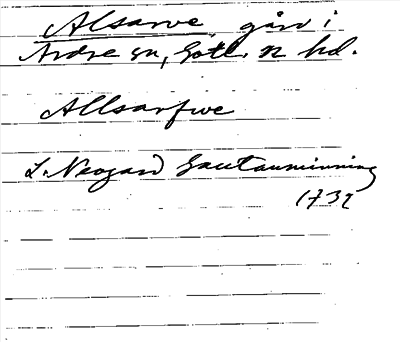 Alsarve gård i
Ardre sn, Gotl. n hd.
Allsarfwe
L. Neogard Gautauminning
1732